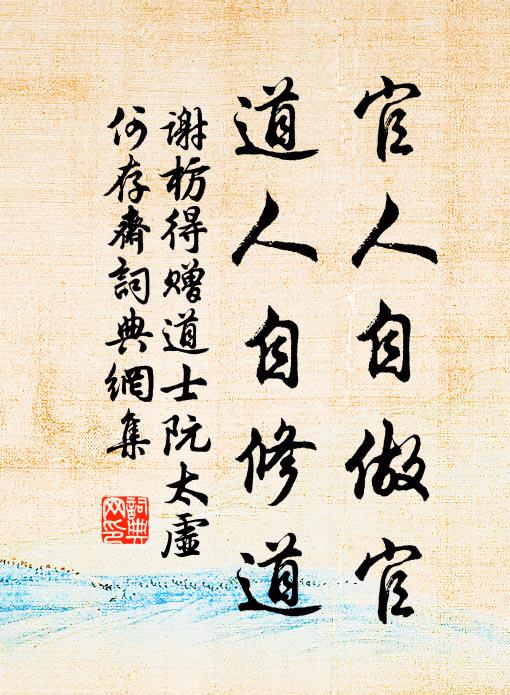 官人自做官
道人自修道
謝枋得贈道士阮太虛
何存齋詞典網集
詞典网印